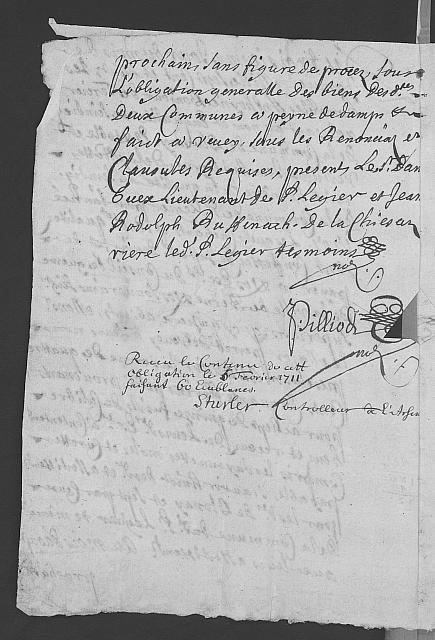 prochains sans figure de procez, sous
L'obligation generalle des biens des d.tes
Deux Communes a peyne de damps et
faict a vevey, sous les Renonciaõ et
Clausules Requises, presents Le Sr. Dan
Cuex Lieutenant de St. Legier et Jean
Rodolph Du de La Chiesaz
riere led. St. Legier tesmoins
Pilliod
Receu le Contenu du ctt
obligation le Fevrier 1711
faisant 60 Ecublancs.
Sturler Controlleur de L'Arsen